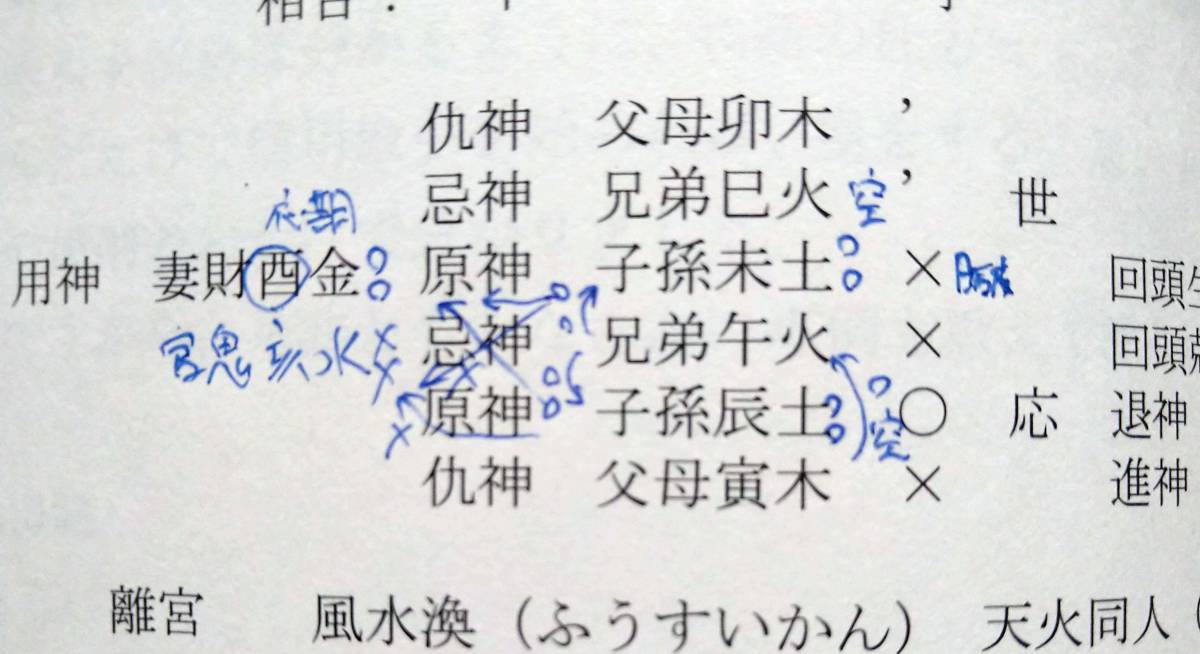 相合：
仇神 父母卯木 ’
忌神 兄弟巳火 空 ’ 世
応期
用神 妻財酉金 原神 子孫未土 × 回頭生
官鬼亥水 忌神 兄弟午火 × 回頭
原神 子孫辰土 空 ○ 応 退神
仇神 父母寅木 × 進神
離宮 風水渙（ふうすいかん） 天火同人（